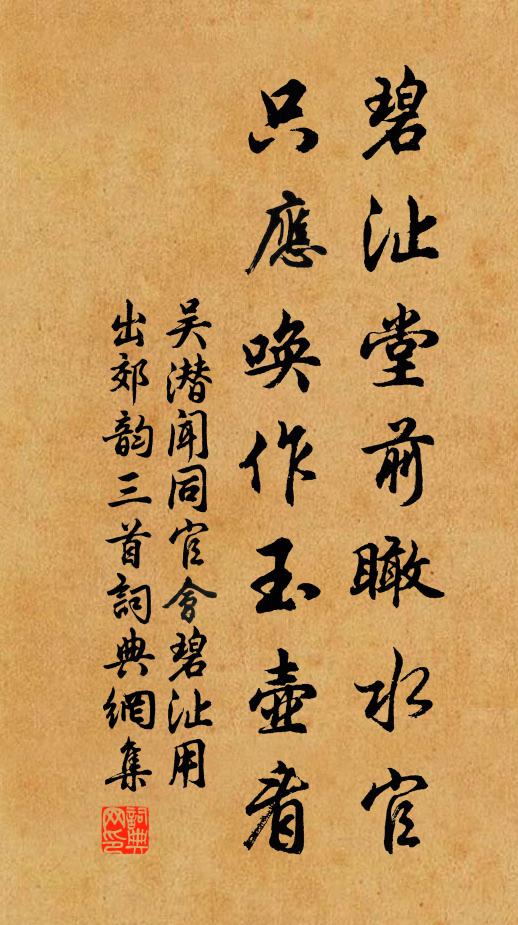 碧沚堂前瞰水官
只應唤作玉壺看
吴潜闻同官會碧沚用
出郊韵三首詞典網集
詞典网印